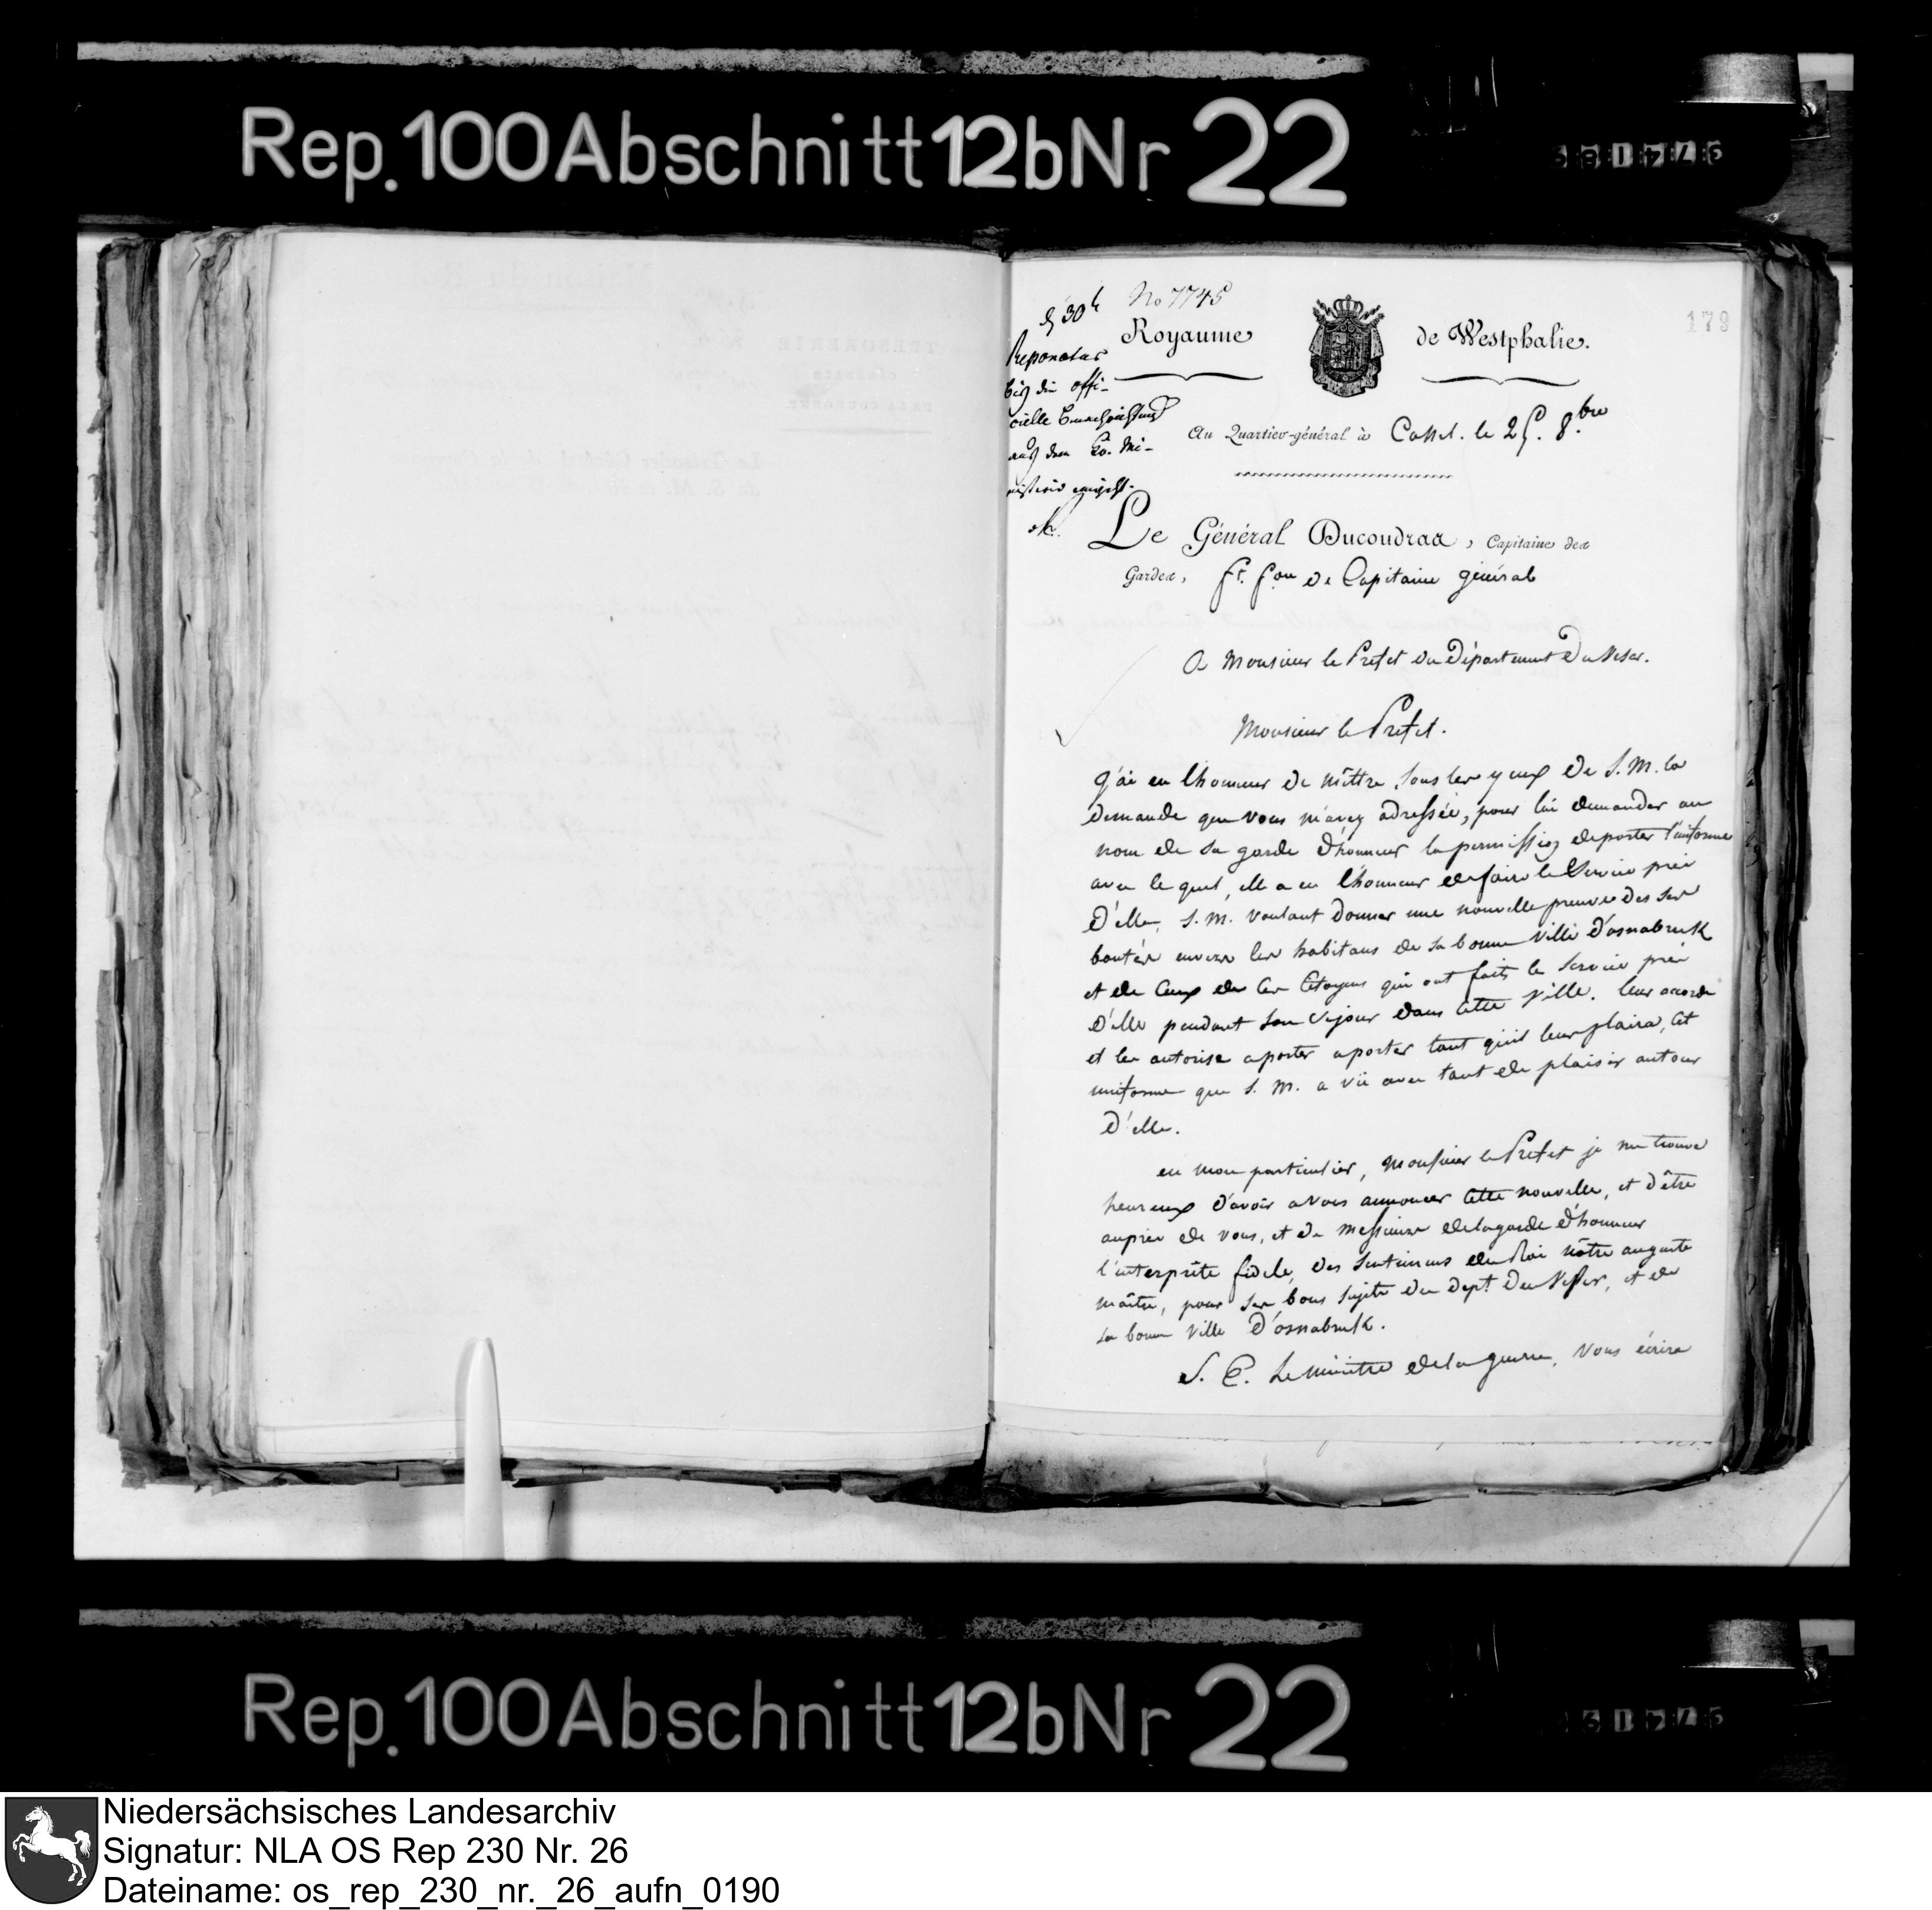 Rep. 100 Abschnitt 12b Nr 22
No 7745
179
Royaume de Westphalie.
Reponatur
bis die offi-
cielle
aus dem Kö. Mi-
Au Quartier-général à Cassel. le 25. 8.bre
Le Général Ducoudras, Capitaine des
Gardes, ft. f.on de Capitaine général
A Monsieur le Prefet du Département du Weser.
Monsieur le Prefet.
J'ai eu l'honneur de mêttre, sous les yeux de S. M. la
demande que vous m'avez adressée, pour lui demander au
nom de sa garde d'honneur la permission de porter l'uniforme
avec le quel, elle a eu l'honneur de faire le Service près
d'elle, S. M. voulant donner une nouvelle preuve des ses
bontés envers les habitans de sa bonne ville d'osnabruk
et de Ceux de Ces Citoyens qui ont faits le service près
d'elle pendant son séjour dans Cette ville. leur accorde
et les autorise aporter aporter tant qu'il leur plaira, Cet
uniforme que S. M. a vû avec tant de plaisir autour
d'elle.
en mon particulier, Monsieur le Prefet je me trouve
heureux d'avoir a vous annoncer Cette nouvelle, et d'être
auprès de vous, et de messieurs de la garde d'honneur
l'interprête fidele, des sentimens du Roi nôtre auguste
maître, pour ses bons sujets du dept. du Weser, et de
sa bonne ville d'osnabruk.
S. E. Le ministre de la guerre, vous écrira
Rep. 100 Abschnitt 12b Nr 22
Niedersächsisches Landesarchiv
Signatur: NLA OS Rep 230 Nr. 26
Dateiname: os_rep_230_nr._26_aufn_0190